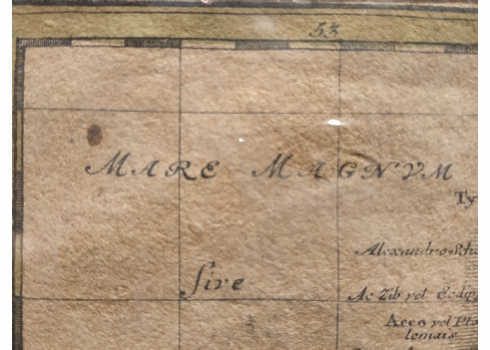 53
MARE MAGNVM
Ty
Alexandro Sch
sive
Ac Zib vel Ecdip
Acco vel Pto
lemais